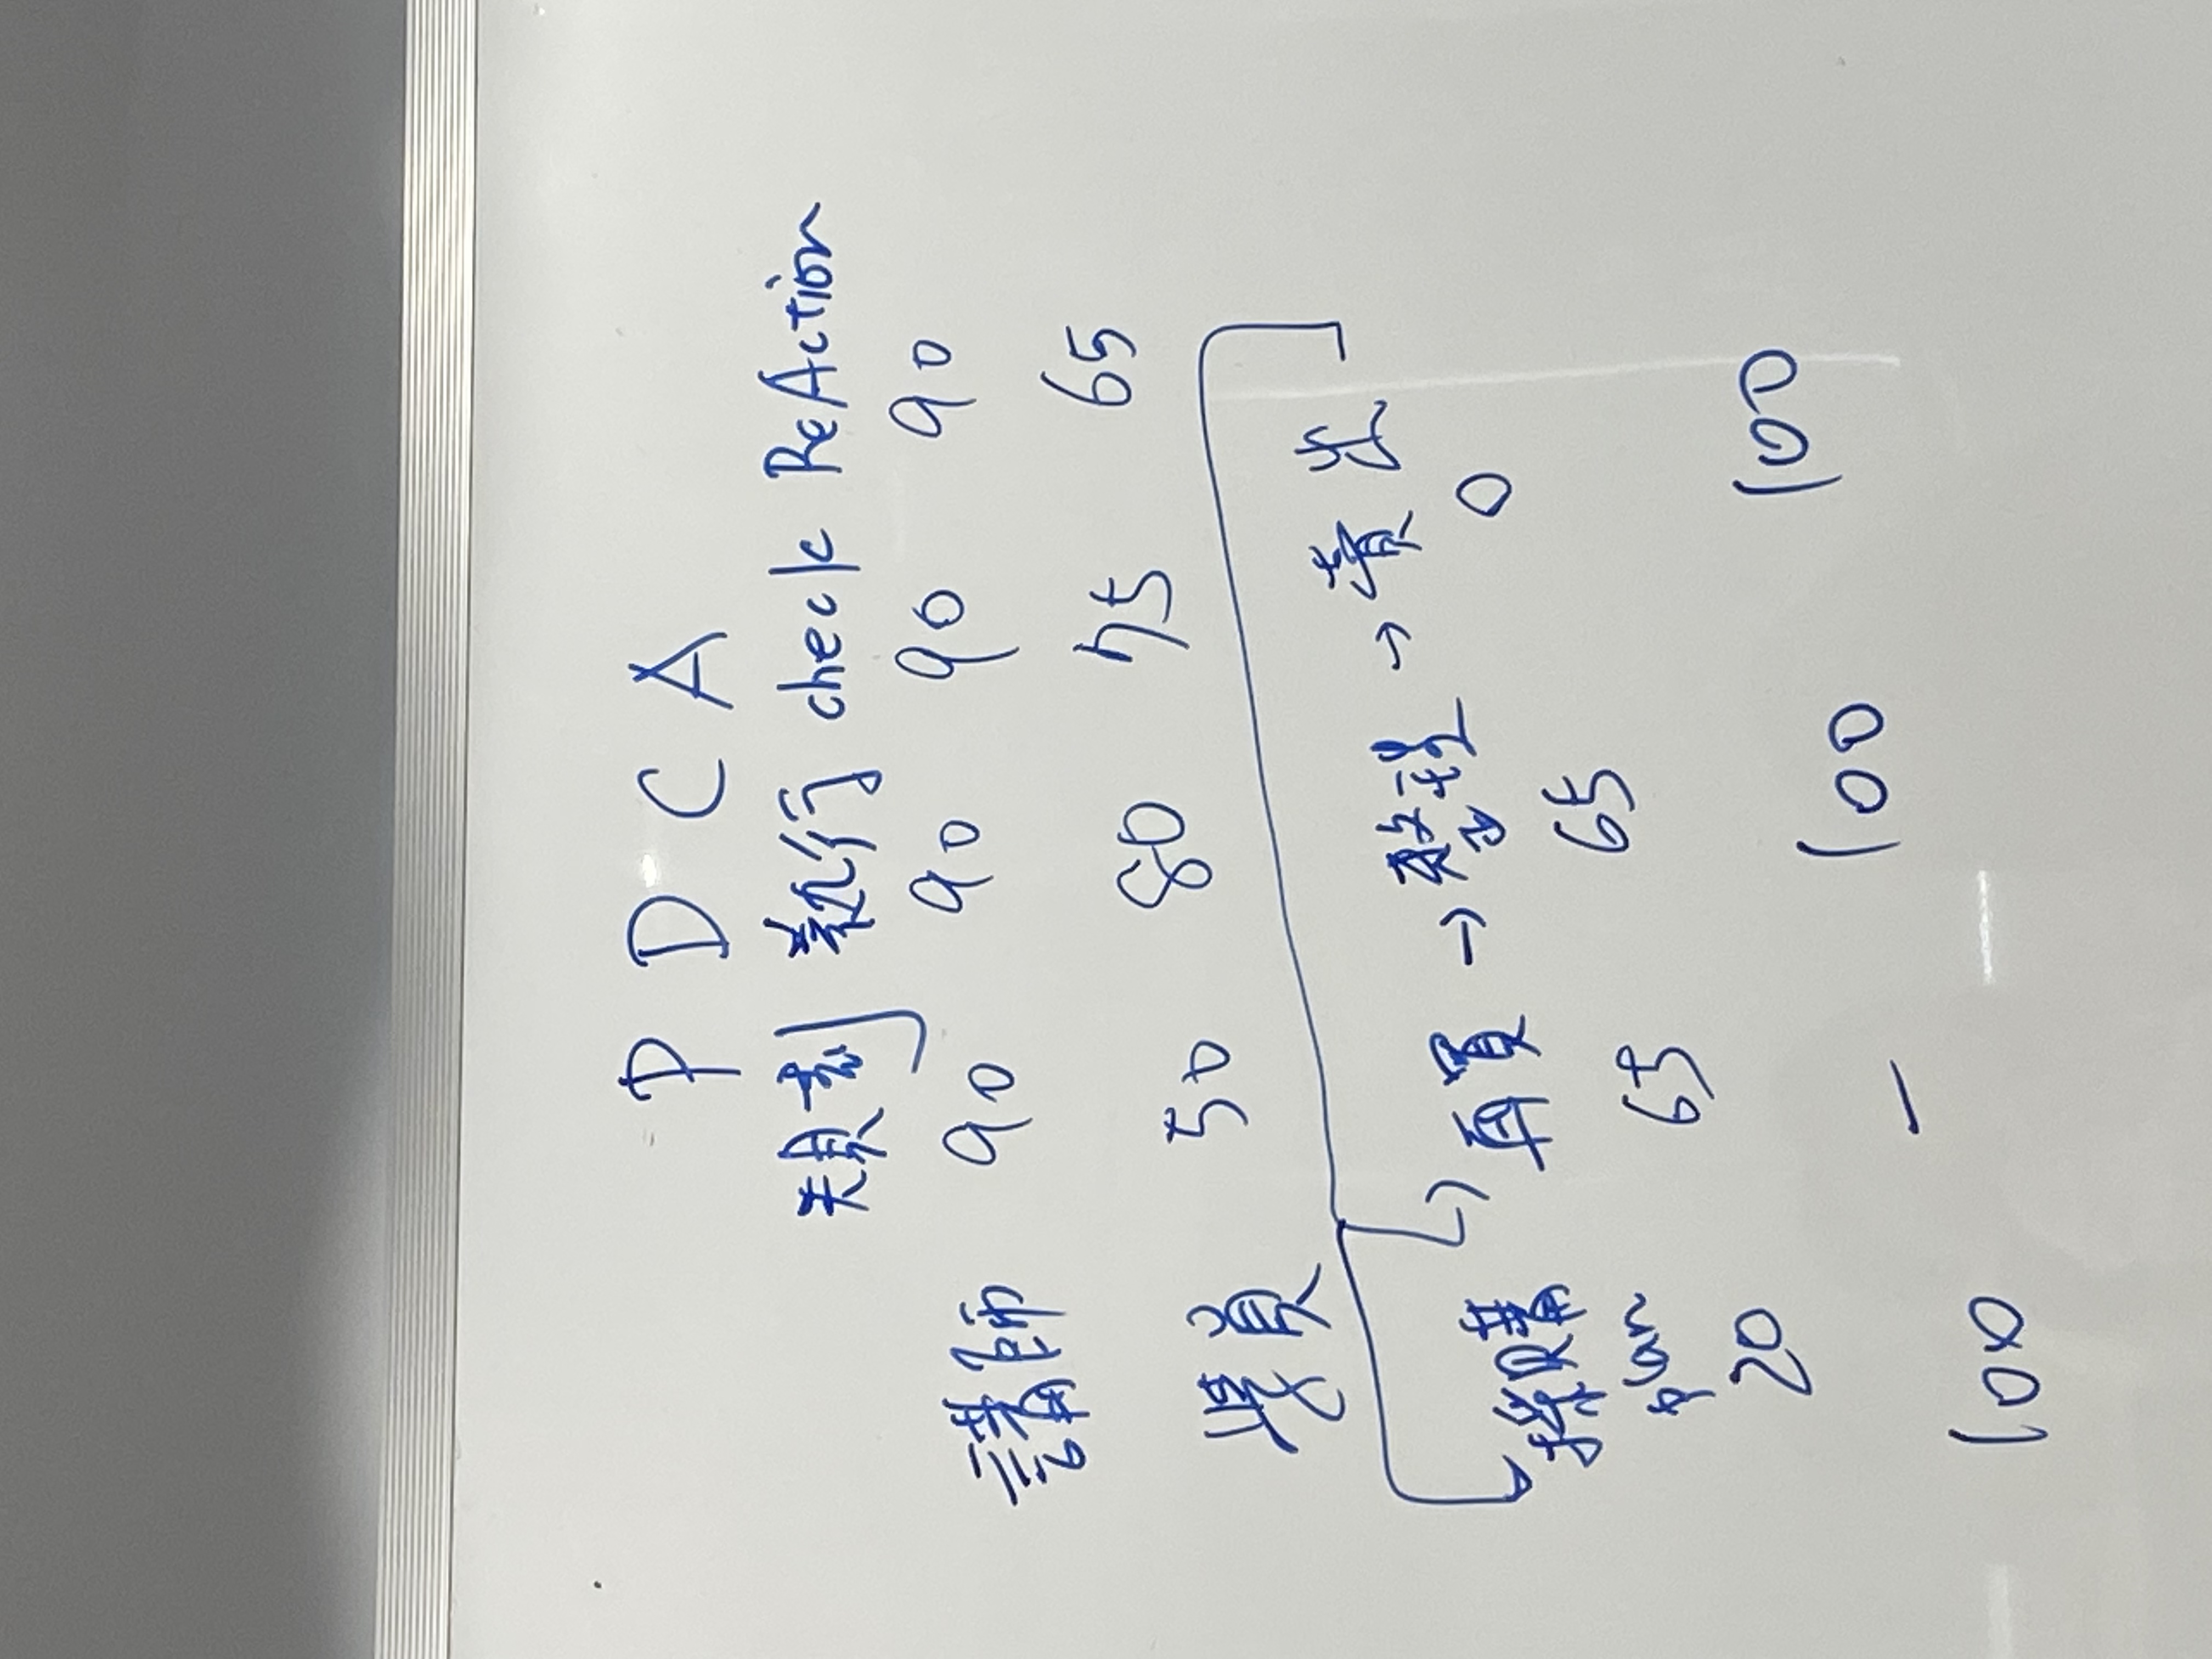 P D C A
規劃 執行 check ReAction
講師 90 90 90 90
學員 50 80 75 65
採購 → 再買 → 整理 → 賣出
plan
20 65 65 0
100 — 100 100